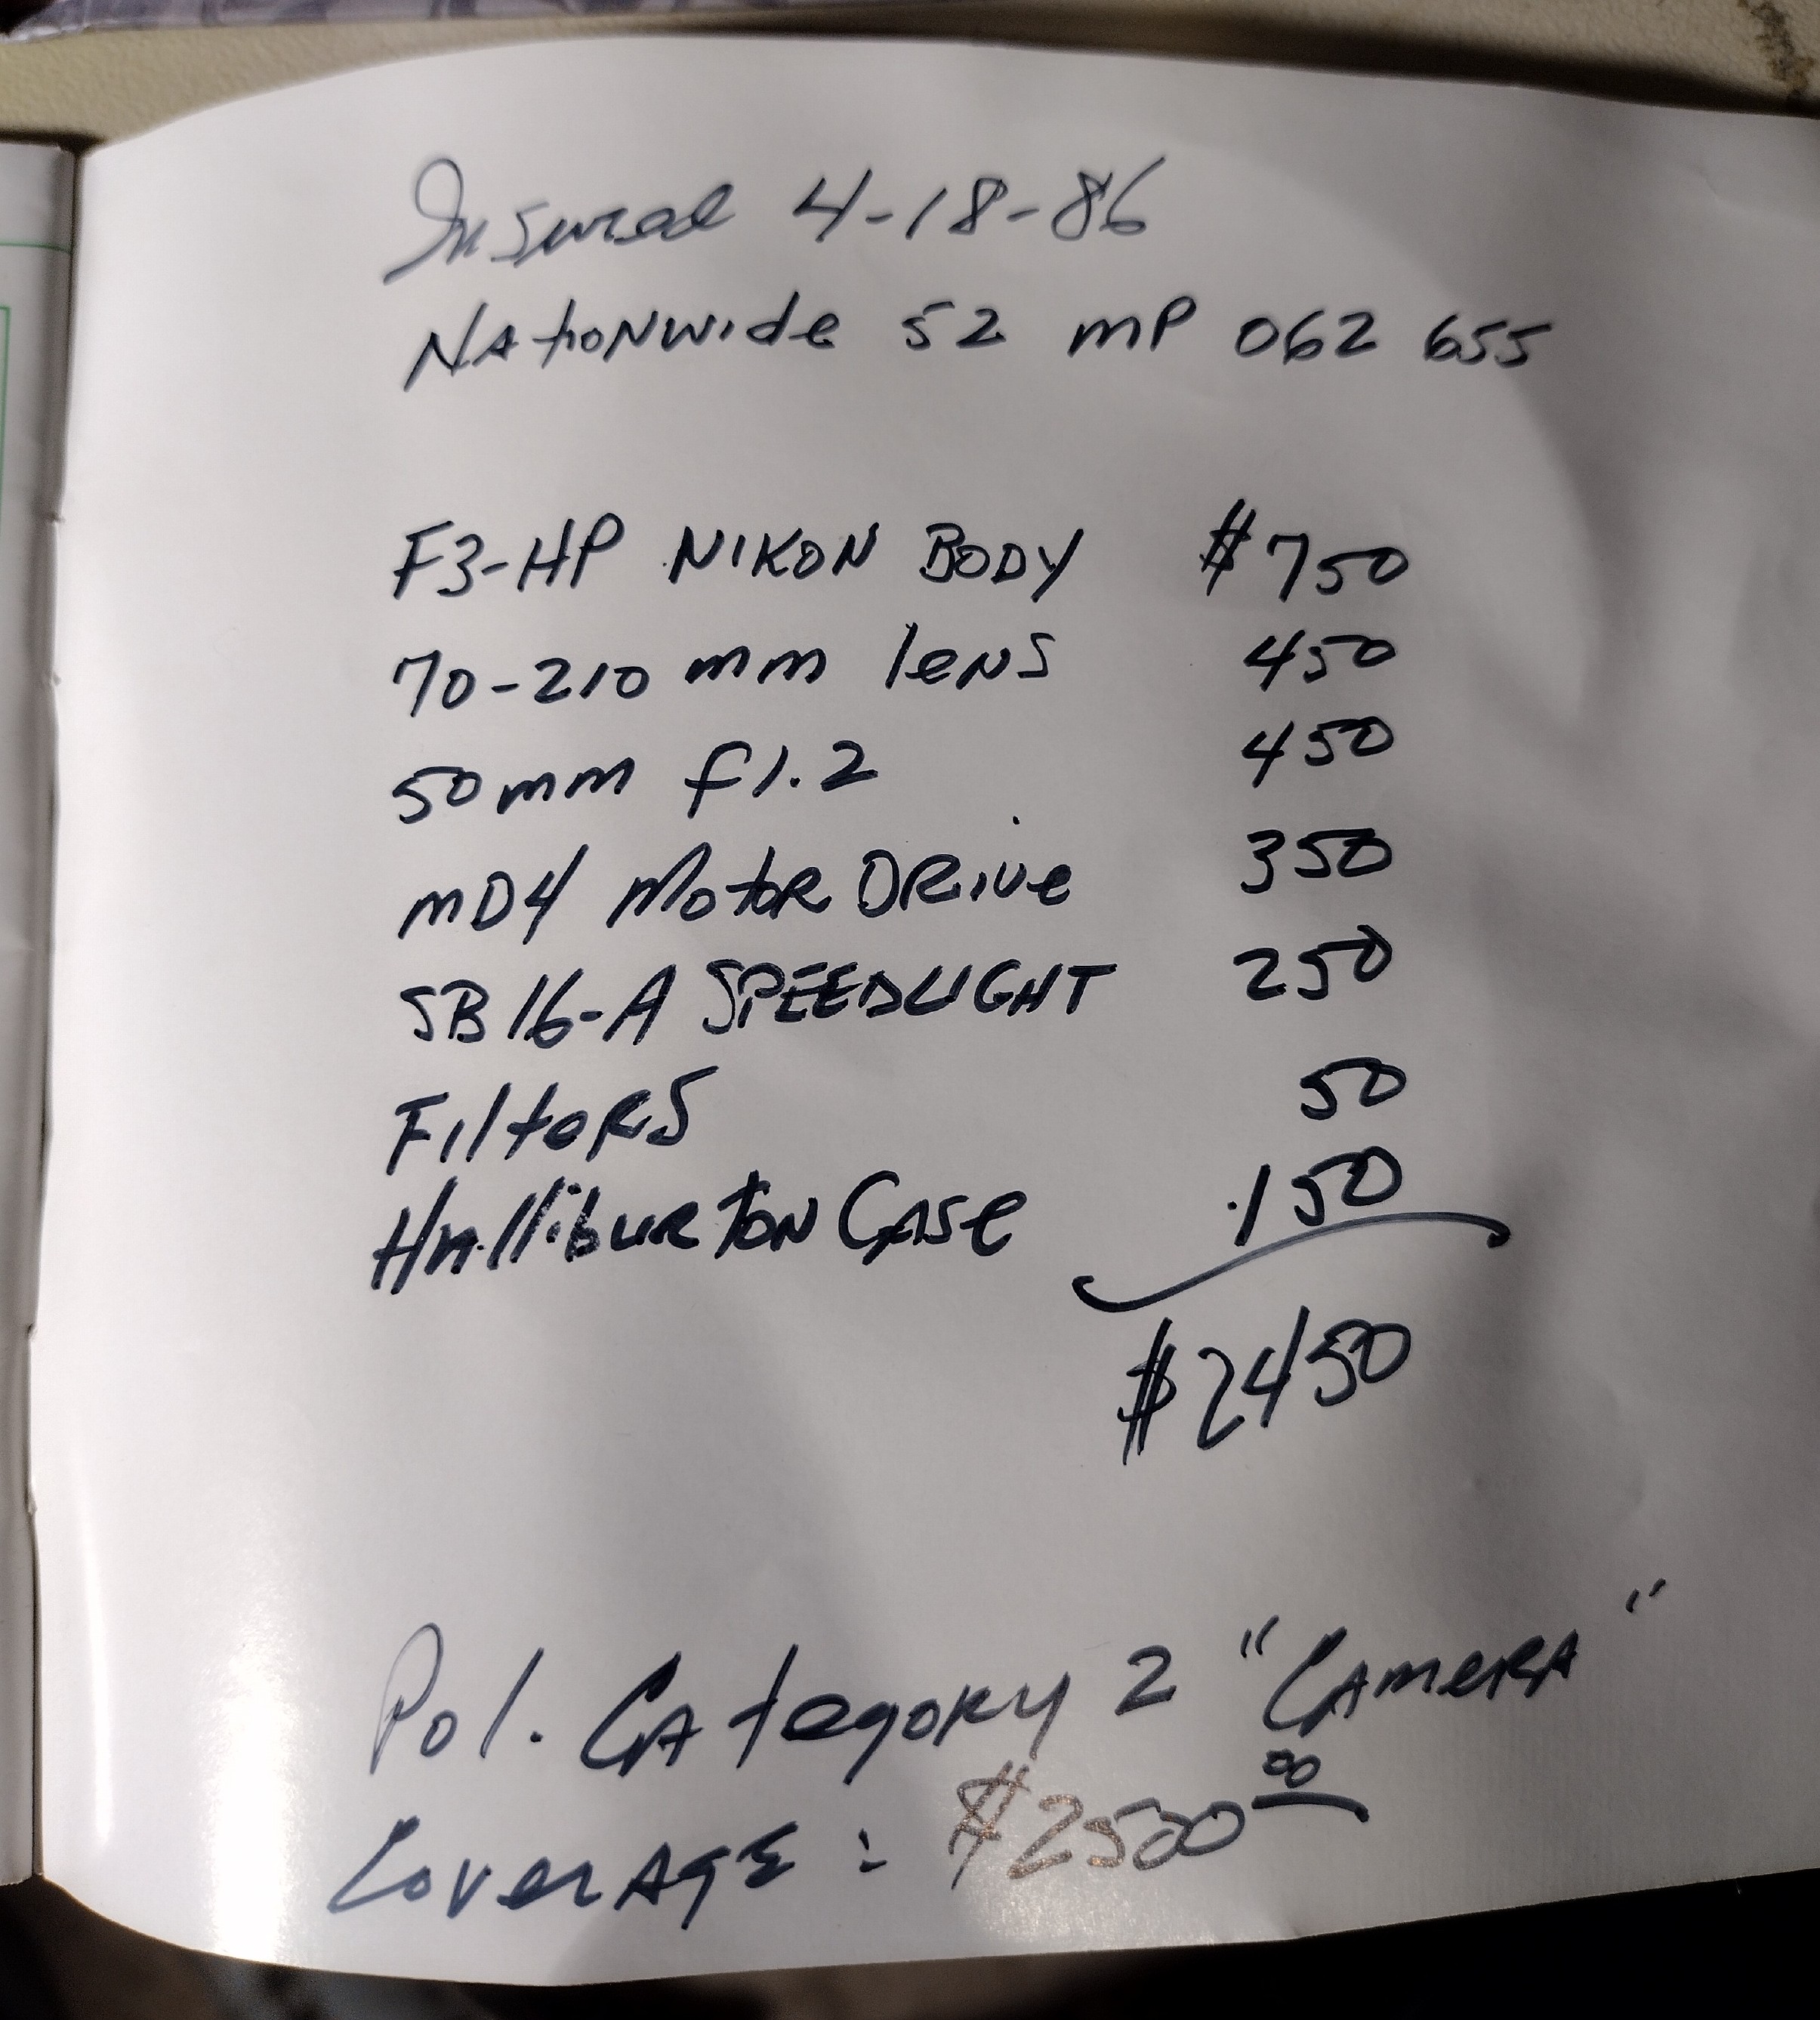 Insured 4-18-86
Nationwide 52 MP 062 655
F3-HP NIKON BODY $750
70-210 mm lens 450
50mm f1.2 450
MD4 Motor Drive 350
SB16-A SPEEDLIGHT 250
Filters 50
Halliburton Case 150
$2450
Pol. Category 2 "Camera"
Coverage: $2500 00